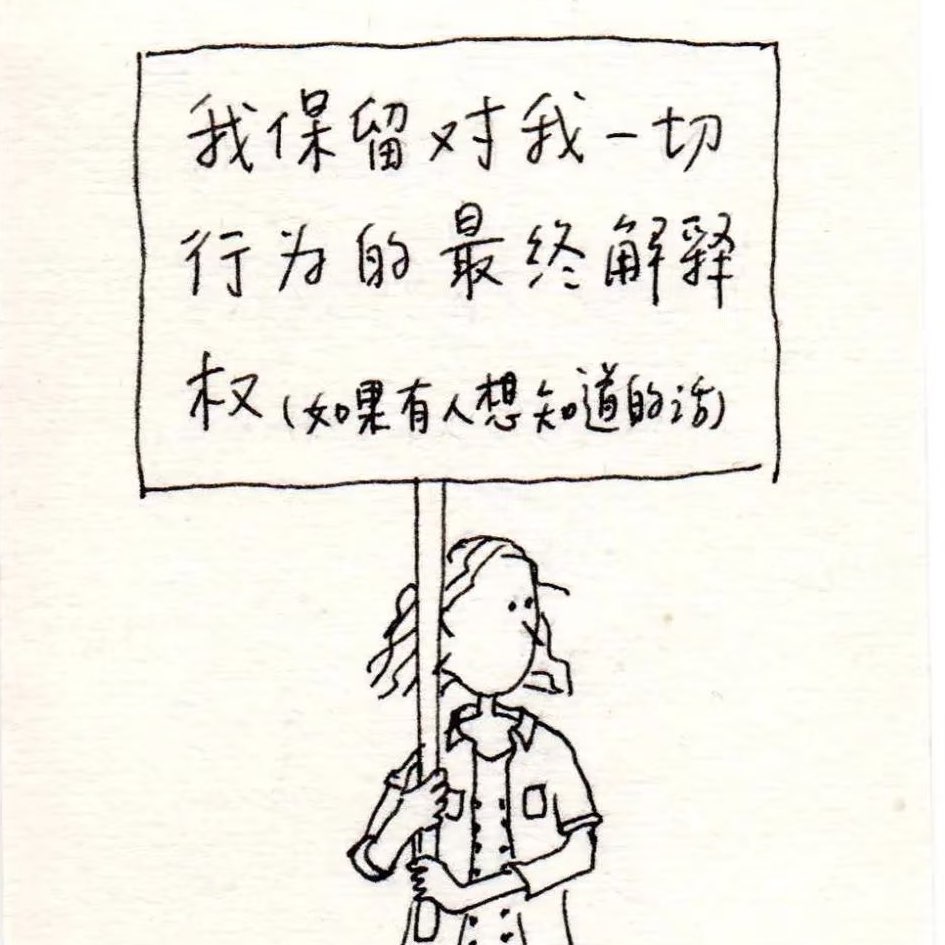 我保留对我一切
行为的最终解释
权(如果有人想知道的话)